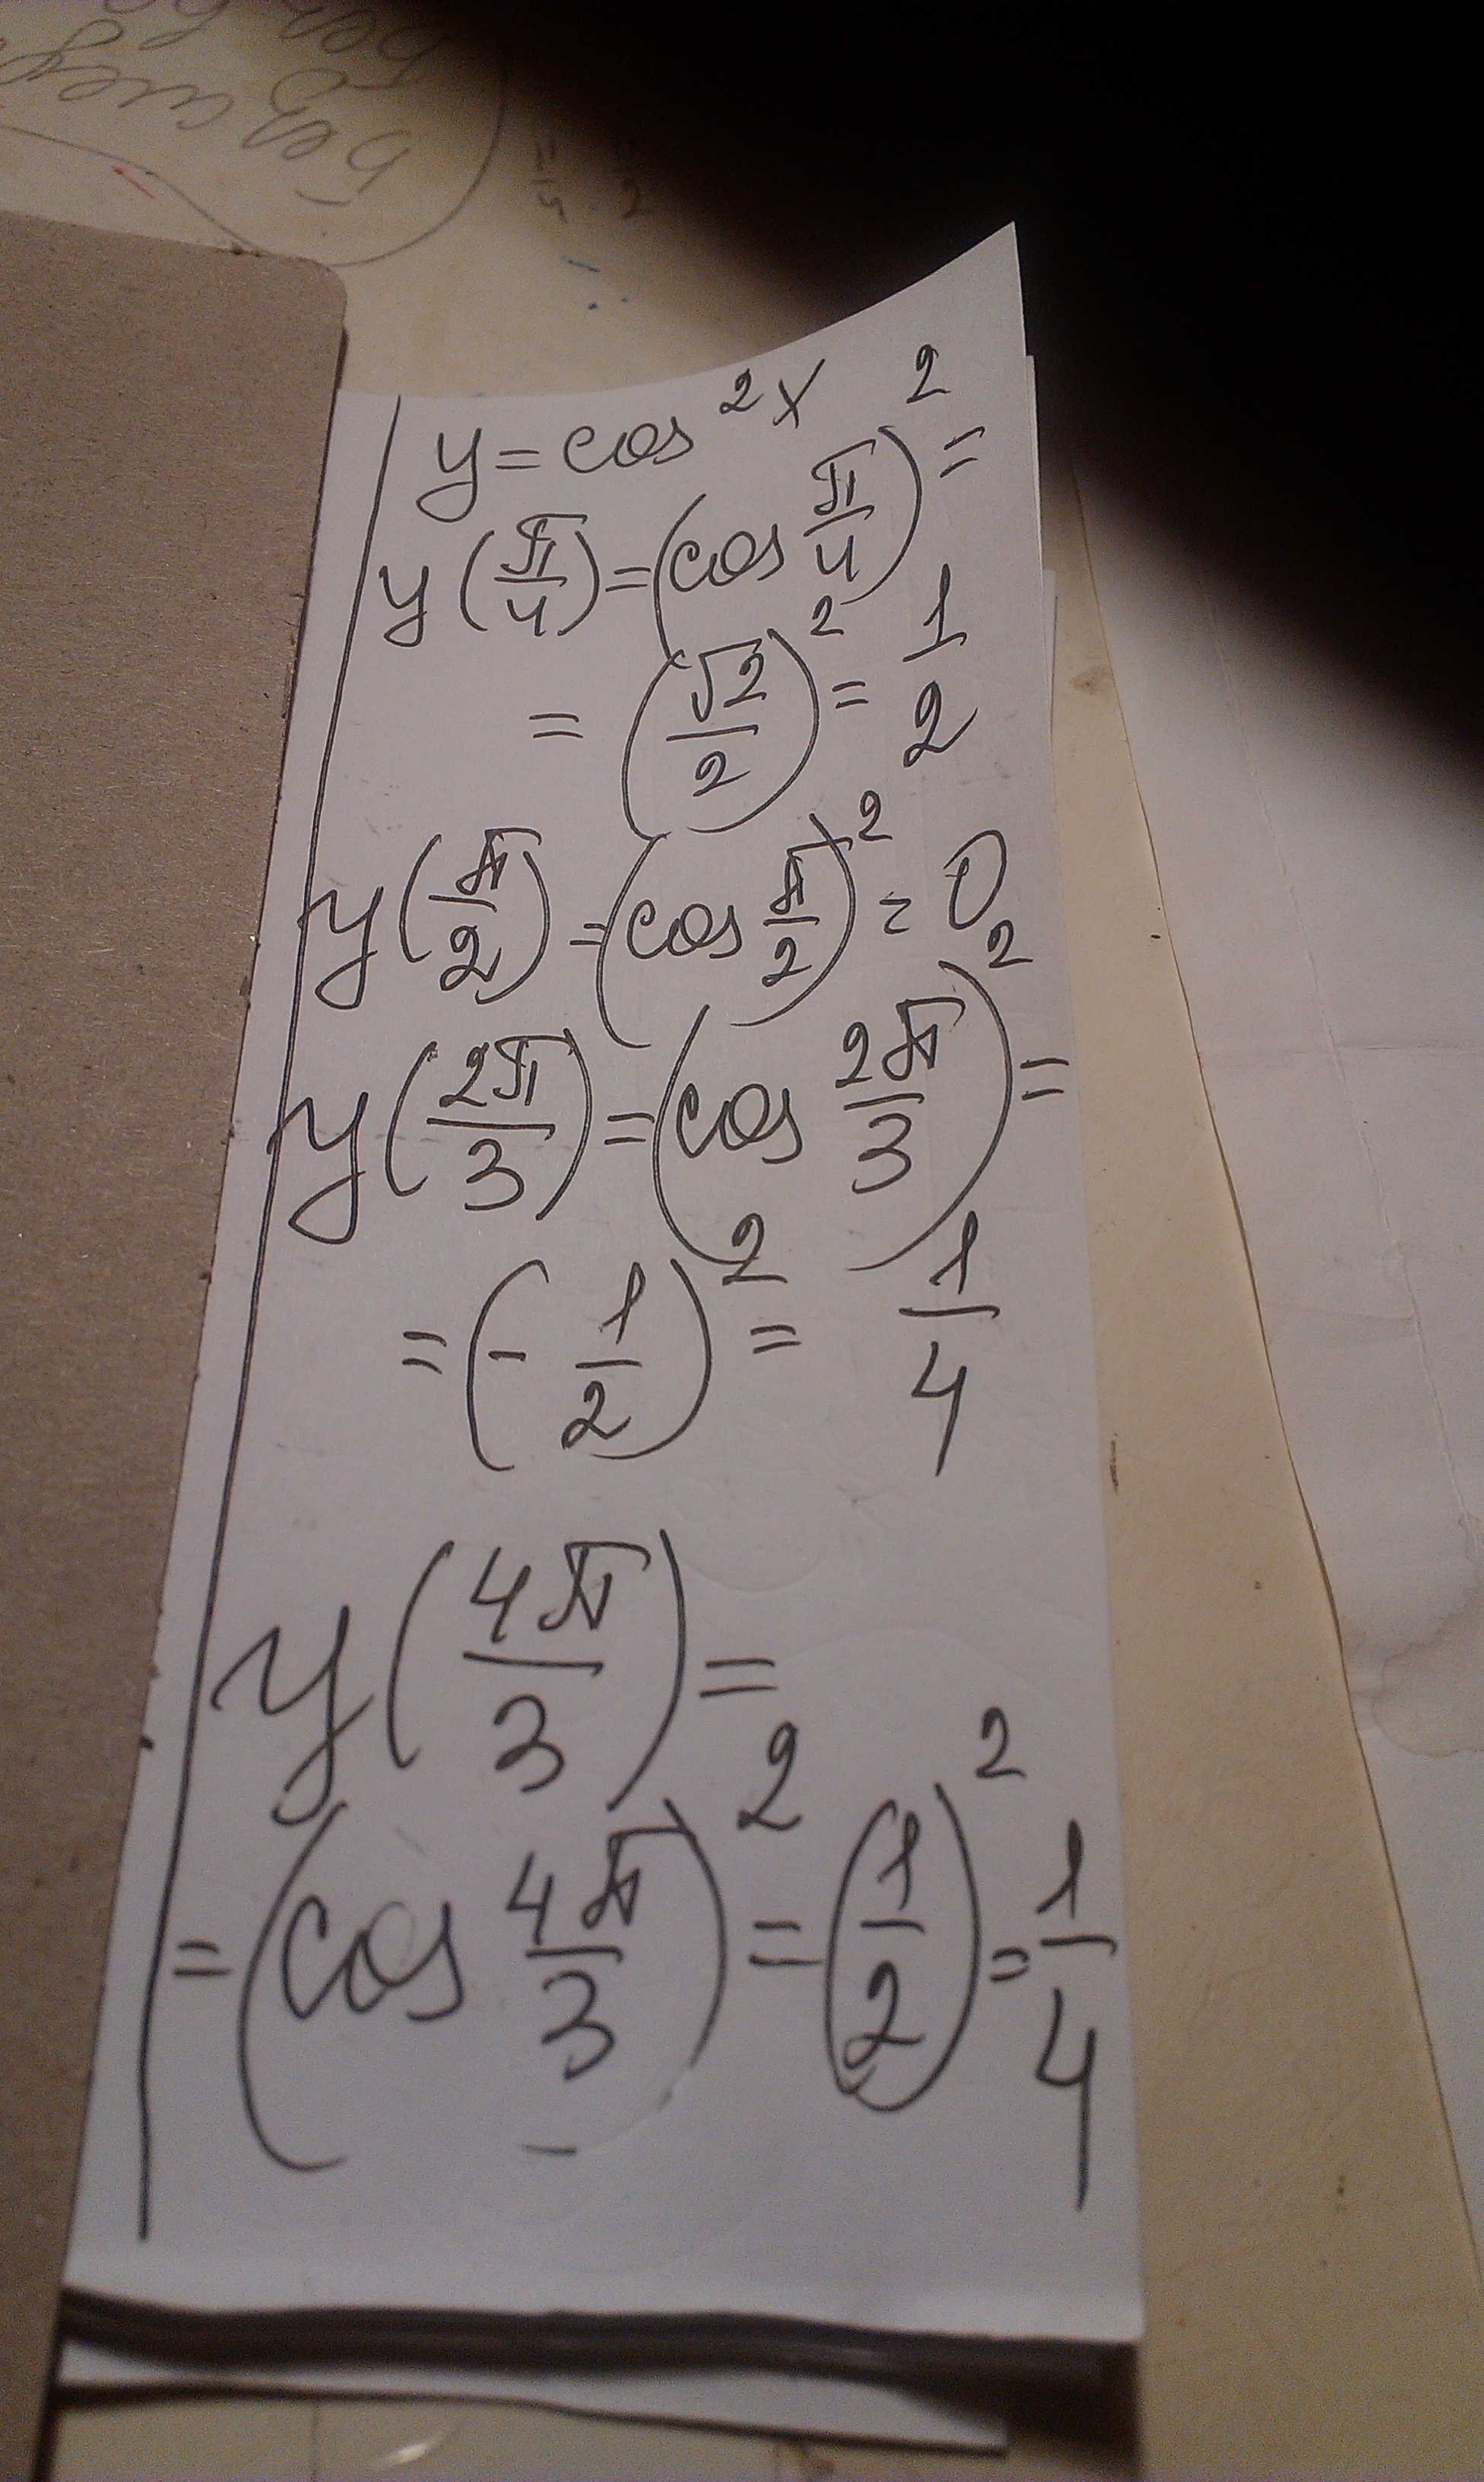 y = cos²x
y(π/4) = (cos π/4)² =
= (√2/2)² = 1/2
y(π/2) = (cos π/2)² = 0
y(2π/3) = (cos 2π/3)² =
= (-1/2)² = 1/4
y(4π/3) =
= (cos 4π/3)² = (1/2)² = 1/4